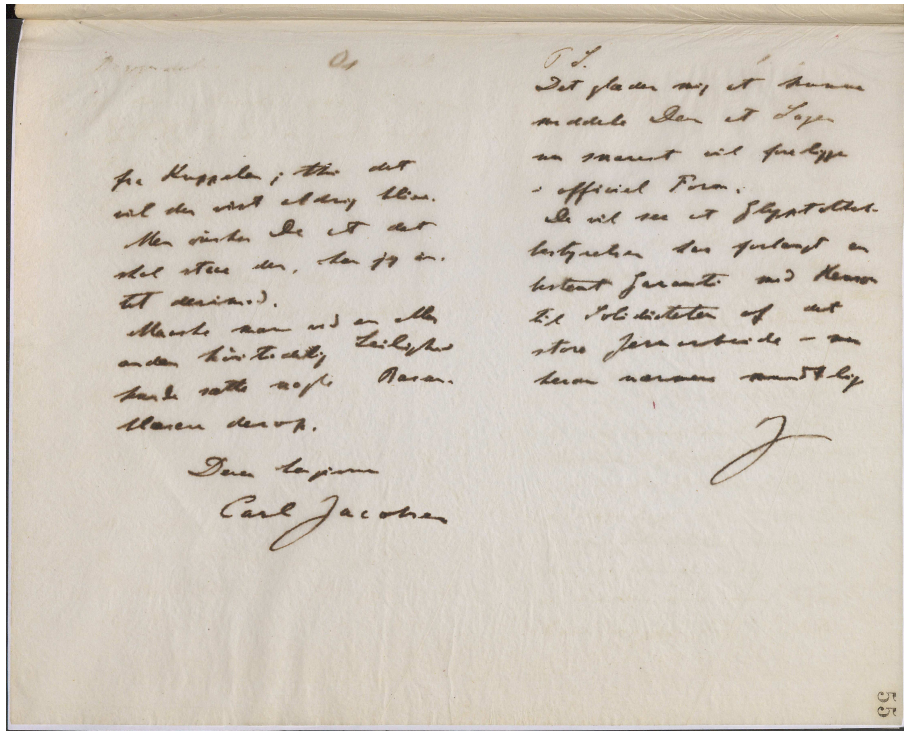 fra Kuppelen; thi det
vil der vist aldrig blive.
Men ønsker De at det
skal staae der, har jeg in-
tet derimod.
Maaske man ved en eller
anden høitidelig Leilighed
kunde sætte nogle Basun-
blæsere derop.
Deres hengivne
Carl Jacobsen
P S.
Det glæder mig at kunne
meddele Dem at Sagen
nu snarest vil foreligge
i officiel Form.
De vil see at Glyptothek-
bestyrelsen har forlangt en
bestemt Garanti med Hensyn
til Soliditeten af det
store Jernarbeide – men
herom nærmere mundtlig
J
55